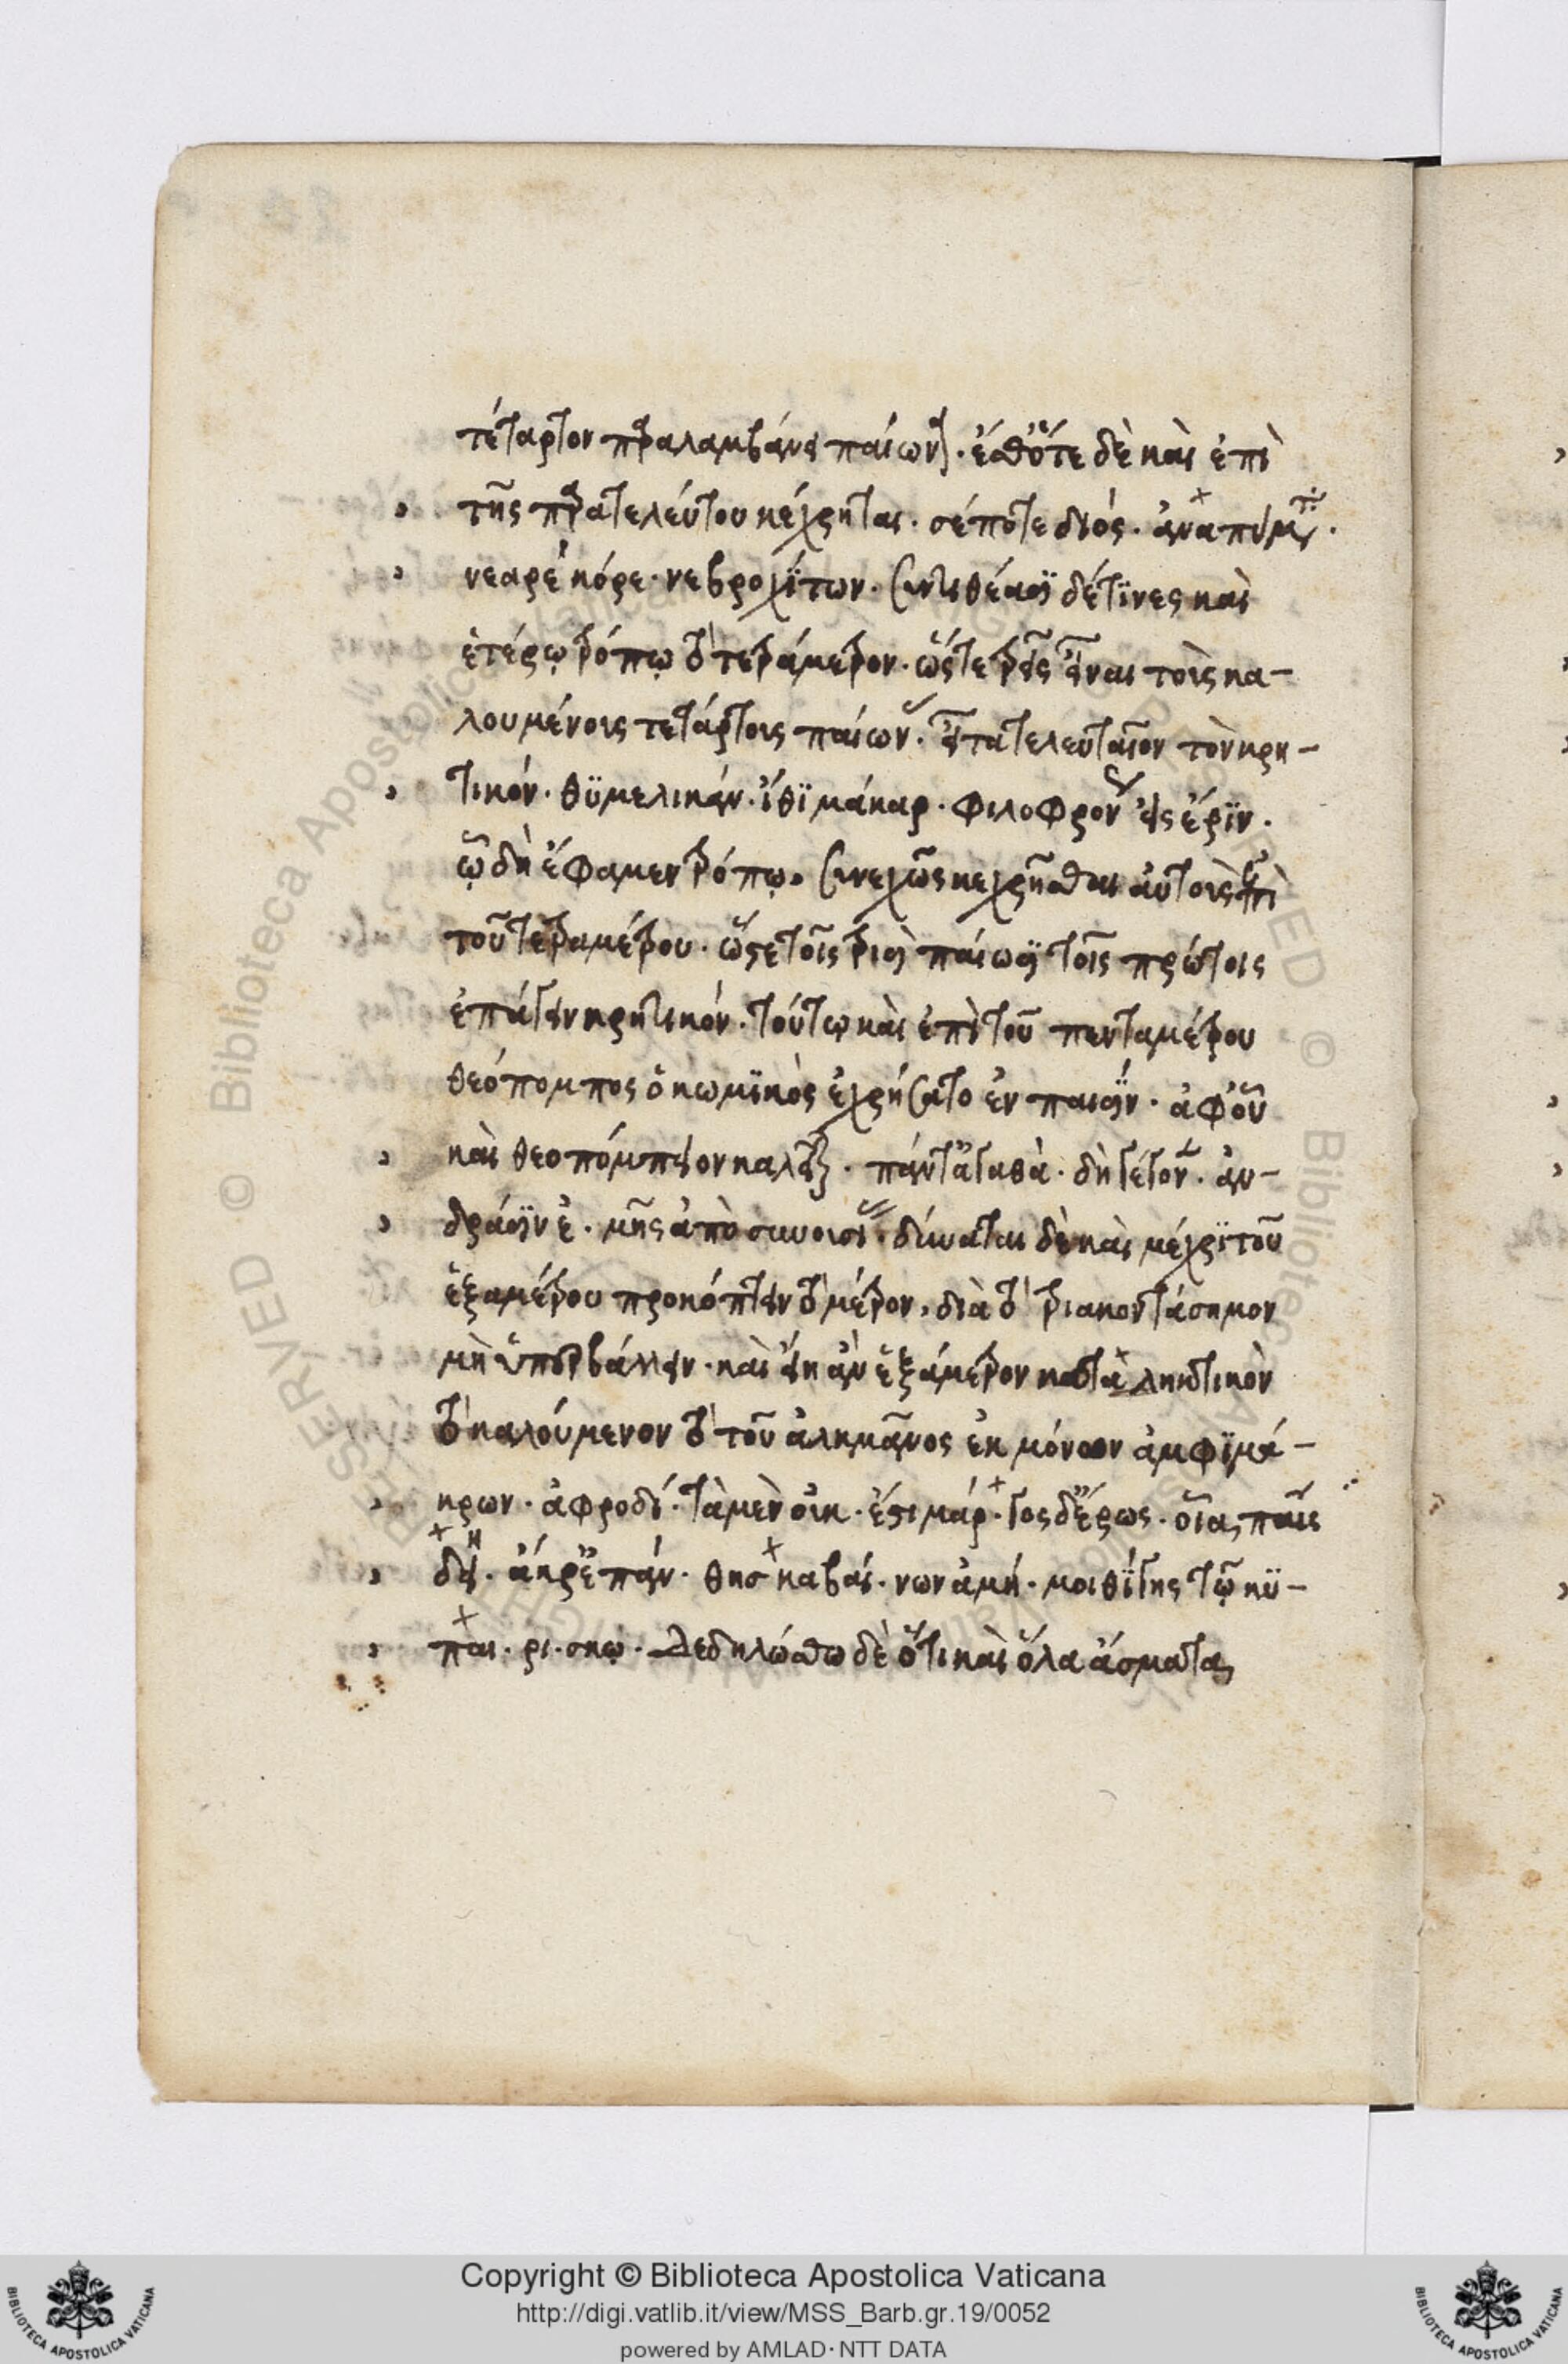 τέταρτον παραλαμβάνει παίωνα. ἔσθ' ὅτε δὲ καὶ ἐπὶ
τῆς παρατελεύτου κέχρηται. σέ ποτε διός. ἀνὰ πύμ
νεαρὲ κόρε. νεβροχίτων. συντιθέασι δέ τινες καὶ
ἑτέρῳ τρόπῳ τὸ τετράμετρον. ὥστε τρεῖς εἶναι τοῖς κα-
λουμένοις τετάρτοις παίων. εἶτα τελευταῖον τὸν κρη-
τικόν. θυμελικάν. ἴθι μάκαρ. φιλοφρόν εἰς ἔριν.
ᾧ δὴ ἔφαμεν τρόπῳ. συνεχῶς κεχρῆσθαι αὐτοῖς ἐπὶ
τοῦ τετραμέτρου. ὥστε τοῖς τρισὶ παίωσι τοῖς πρώτοις
ἐπάγειν κρητικόν. τούτῳ καὶ ἐπὶ τοῦ πενταμέτρου
θεόπομπος ὁ κωμικὸς ἐχρήσατο ἐν παισίν. ἀφ' οὗ
καὶ θεοπόμπειον καλεῖται. πάντ' ἀγαθὰ. δὴ γέγον. ἀν-
δράσιν ἐ. μῆς ἀπὸ συνουσί. δύναται δὲ καὶ μέχρι τοῦ
ἑξαμέτρου προκόπτειν τὸ μέτρον, διὰ τὸ τριακοντάσημον
μὴ ὑπερβάλλειν. καὶ εἴη ἂν ἑξάμετρον καταληκτικὸν
τὸ καλούμενον τὸ τοῦ ἀλκμᾶνος ἐκ μόνων ἀμφιμά-
κρων. ἀφροδί. τὰ μὲν οἰκ. ἔστι μάρ. γος δ' ἔρως. οἷα, παῖς
δει. ἄκρ' ἐπάν. θησ καβαί. νων ἁμή. μοι θίγης τῷ κυ-
παι. ρι. σκῳ. Δεδηλώσθω δὲ ὅτι καὶ ὅλα ἄσματα
Copyright © Biblioteca Apostolica Vaticana
http://digi.vatlib.it/view/MSS_Barb.gr.19/0052
powered by AMLAD·NTT DATA